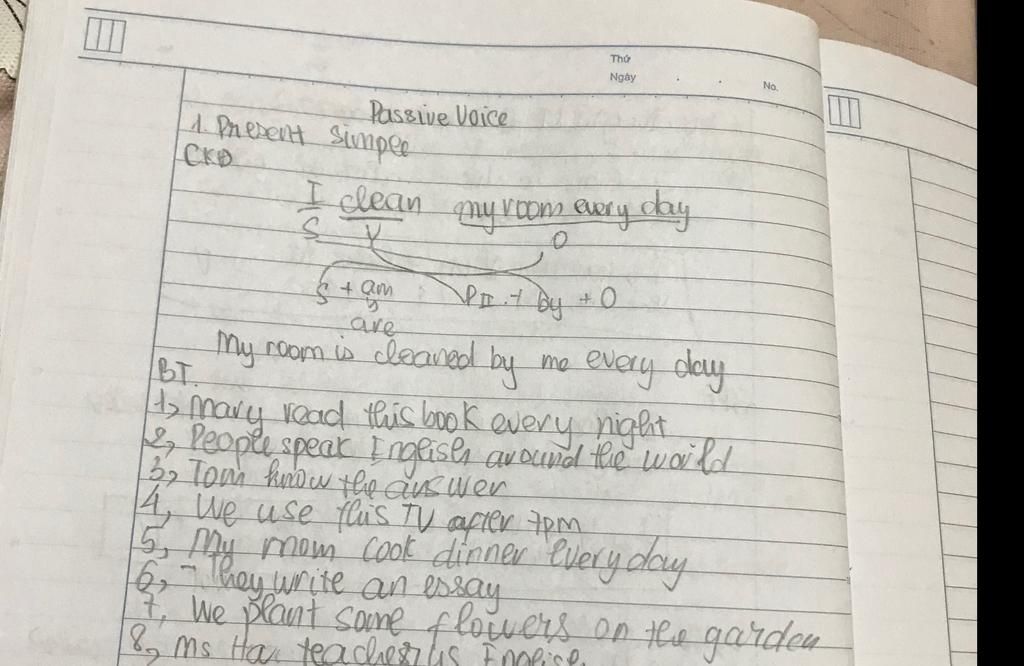 Thứ
Ngày
No.
Passive Voice
1. Present Simple
CKĐ
I clean my room every day
S V O
S + am PII + by + O
is
are
My room is cleaned by me every day
BT.
1, Mary read this book every night
2, People speak English around the world
3, Tom know the answer
4, We use this TV after 7pm
5, My mom cook dinner every day
6, They write an essay
7, We plant some flowers on the garden
8, Ms Ha teaches us